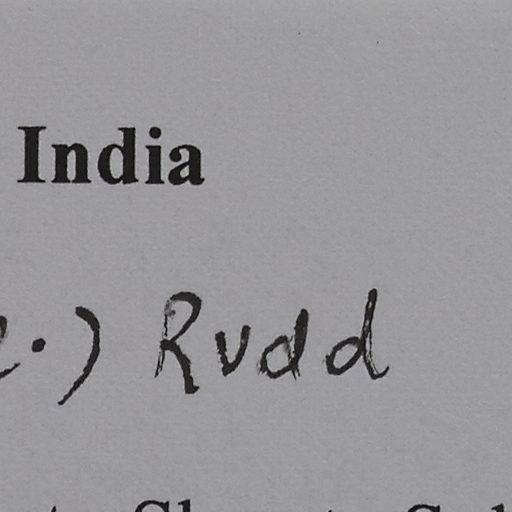 India
.) Rudd